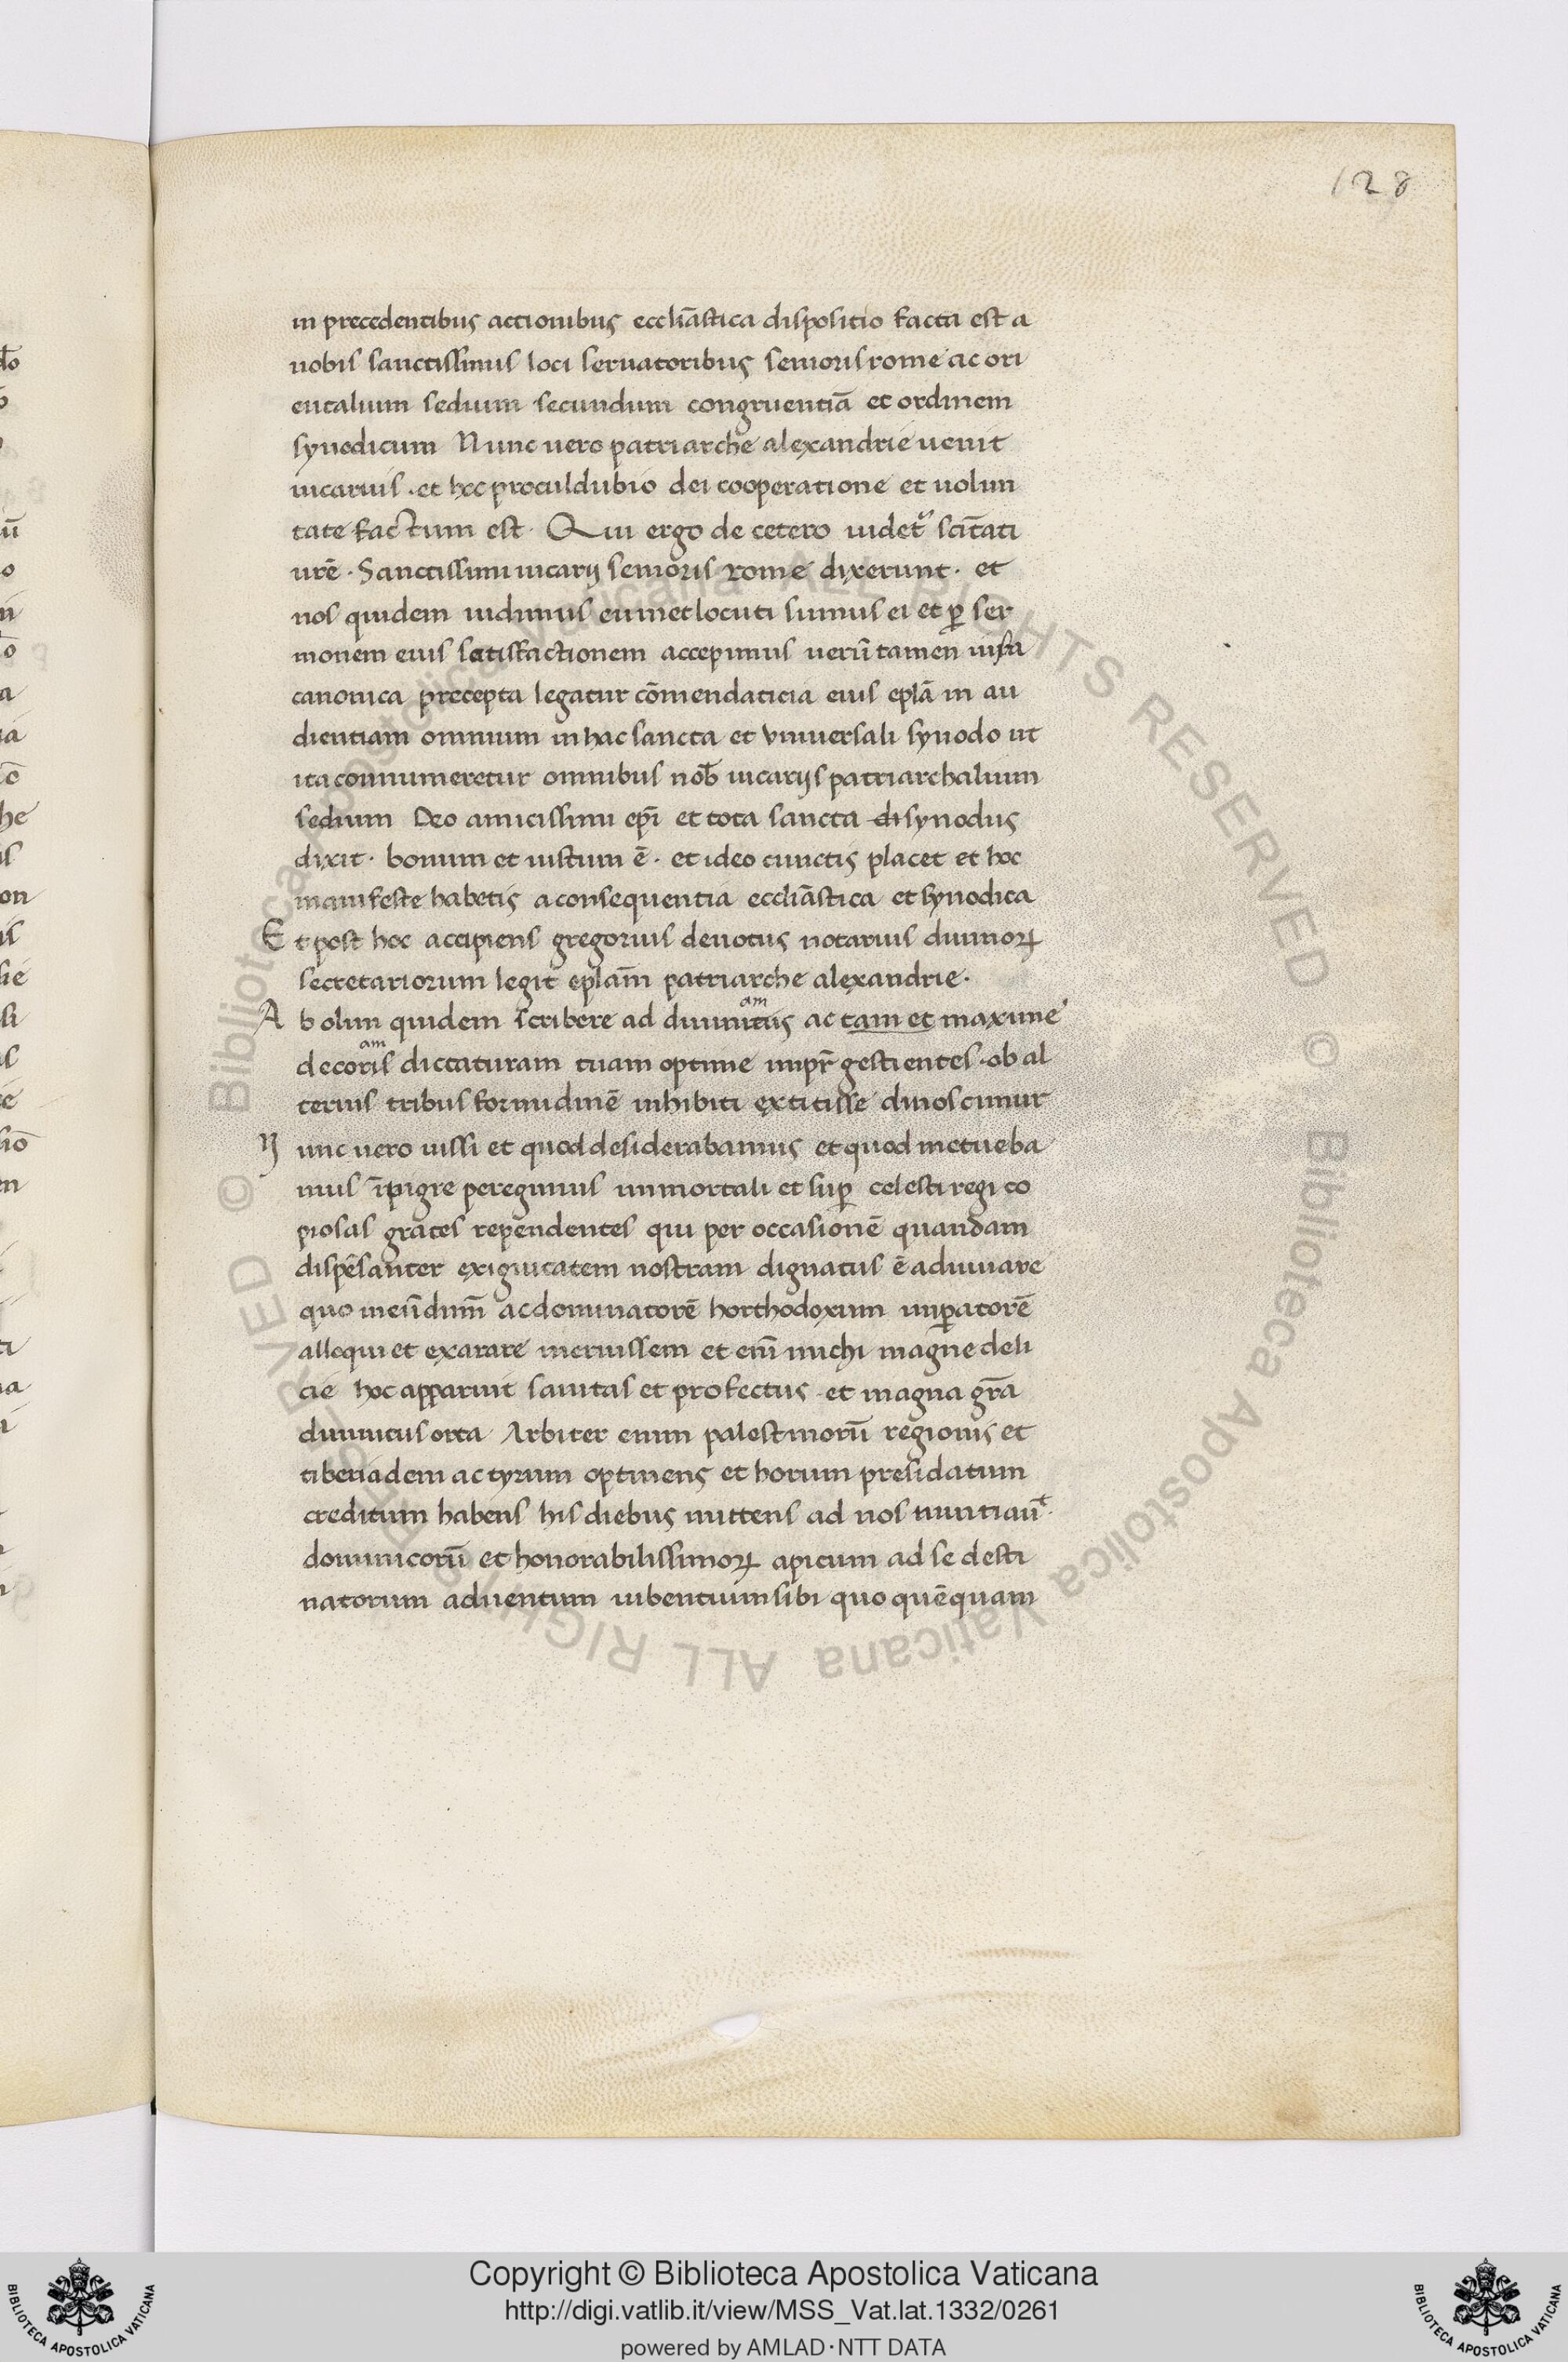 128
in precedentibus actionibus eccliãstica dispositio facta est a
nobis sanctissimis loci seruatoribus senioris rome ac ori
entalium sedium secundum congruentiã et ordinem
synodicum Nunc uero patriarche alexandrie uenit
uicarius · et hoc proculdubio dei cooperatione et uolun
tate factum est · Qui ergo de cetero uidet᷑ sci͞tati
ur̃e · Sanctissimi uicarij senioris rome dixerunt · et
nos quidem uidimus eum et locuti sumus ei et ꝑ ser
monem eius satisfactionem accepimus uerũtamen iuxta
canonica precepta legatur cõmendaticia eius epl̃a in au
dientiam omnium in hac sancta et vniuersali synodo ut
ita connumeretur omnibus nob̃ uicarijs patriarchalium
sedium Deo amicissimi ep̃i et tota sancta di synodus
dixit · bonum et iustum ẽ · et ideo cunctis placet et hoc
manifeste habetis a consequentia eccliãstica et synodica
Et post hoc accipiens gregorius deuotus notarius diuinoꝝ
secretariorum legit epl̃am patriarche alexandrie ·
am
Ab olim quidem scribere ad diuinitus ac tam et maxime
am
decoris dictaturam tuam optime impr̃ gestientes · ob al
terius tribus formidinẽ inhibiti extitisse dinoscimur
Nunc uero iussi et quod desiderabamus et quod metueba
mus ĩpigre peregimus immortali et suꝑ celesti regi co
piosas grates repẽndentes qui per occasionẽ quandam
dispẽsanter exiguitatem nostram dignatus ẽ adiuuare
quo meũ dñm ac dominatorẽ horthodoxum imꝑatorẽ
alloqui et exarare meruissem et eni᷑ michi magne deli
cie hoc apparuit sanitas et profectus · et magna gr̃a
diuinitus orta Arbiter enim palestinorũ regionis et
tiberiadem ac tyrum optinens et horum presidatum
creditum habens his diebus mittens ad nos nuntiauͭ ·
dominicorũ et honorabilissimoꝝ apicum ad se desti
natorum aduentum iubentium sibi quo quẽquam
Copyright © Biblioteca Apostolica Vaticana
http://digi.vatlib.it/view/MSS_Vat.lat.1332/0261
powered by AMLAD·NTT DATA